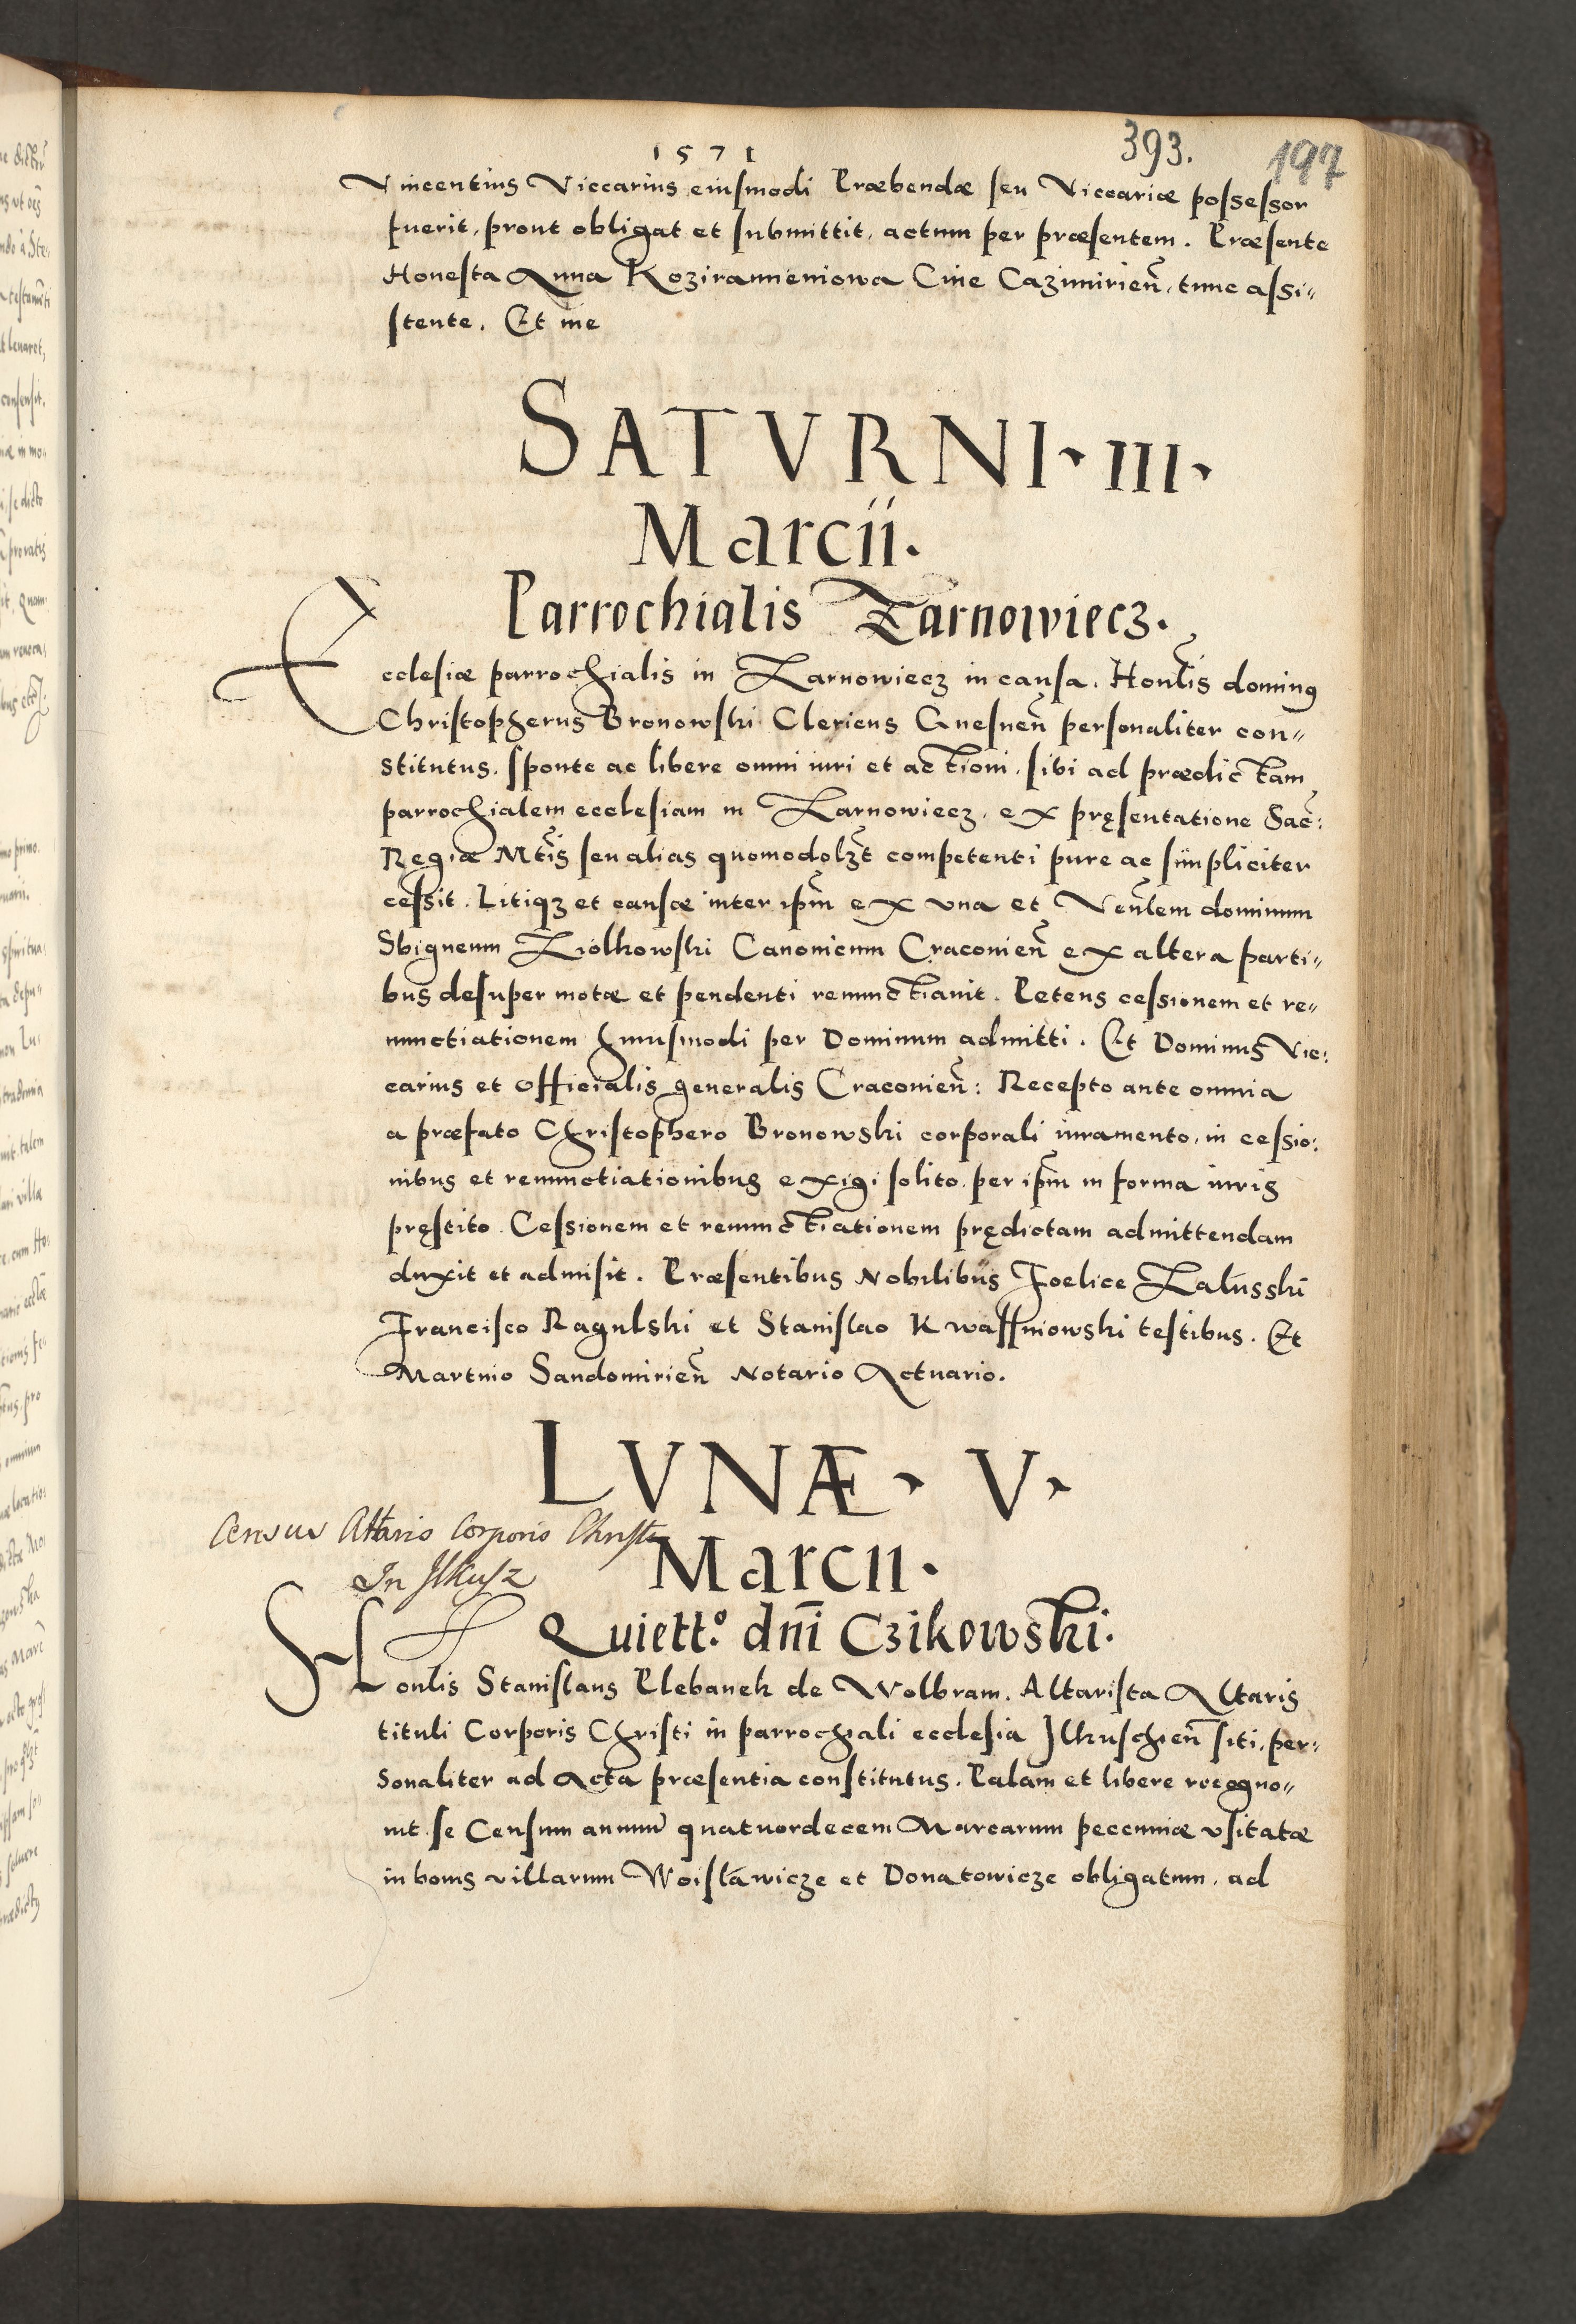 1571
393.
197
Vincentius Viccarius eiusmodi Præbendæ seu Viccariæ possessor
fuerit, prout obligat et submittit, actum per præsentem. Præsente
Honesta Anna Koziranieniowa Cive Cazimirieñ, tunc assi„
stente. Et me
SATVRNI · III ·
Marcii.
Parrochialis Zarnowiecz.
Ecclesiæ parrochialis in Zarnowiecz in causa. Honlis dominus
Christopherus Bronowski Clericus Gnesneñ personaliter con„
stitutus, sponte ac libere omni iuri et actioni, sibi ad prædictam
parrochialem ecclesiam in Zarnowiecz, ex pręsentatione Sac:
Regiæ Mtis seu alias quomodolzt competenti pure ac simpliciter
cessit. Litiqz et causæ inter ipm̃ ex una et Venlem dominum
Sbigneum Ziolkowski Canonicum Cracovieñ ex altera parti„
bus desuper motæ et pendenti renunctiavit. Petens cessionem et re„
nunctiationem huiusmodi per Dominum admitti. Et Dominus Vic:
carius et officialis generalis Cracovieñ: Recepto ante omnia
a præfato Christophero Bronowski corporali iuramento, in cessio:
nibus et renunctiationibus exigi solito, per ipm̃ in forma iuris
pręstito. Cessionem et renunctiationem prędictam admittendam
duxit et admisit. Præsentibus Nobilibus Foelice Zalusski
Francisco Ragulski et Stanislao Kwassniowski testibus. Et
Martino Sandomirieñ Notario Actuario.
LVNÆ · V ·
Census Altaris Corporis Christi
Marcii.
In Ilkusz
Quiett.º dnĩ Czikowski.
Honlis Stanislaus Plebanek de Wolbram. Altarista Altaris
tituli Corporis Christi in parrochiali ecclesia Ilkuschieñ siti, per„
sonaliter ad Acta præsentia constitutus. Palam et libere recogno„
vit se Censum annuũ quatuordecem Marcarum peccuniæ usitatæ
in bonis villarum Woislawicze et Donatowicze obligatum, ad